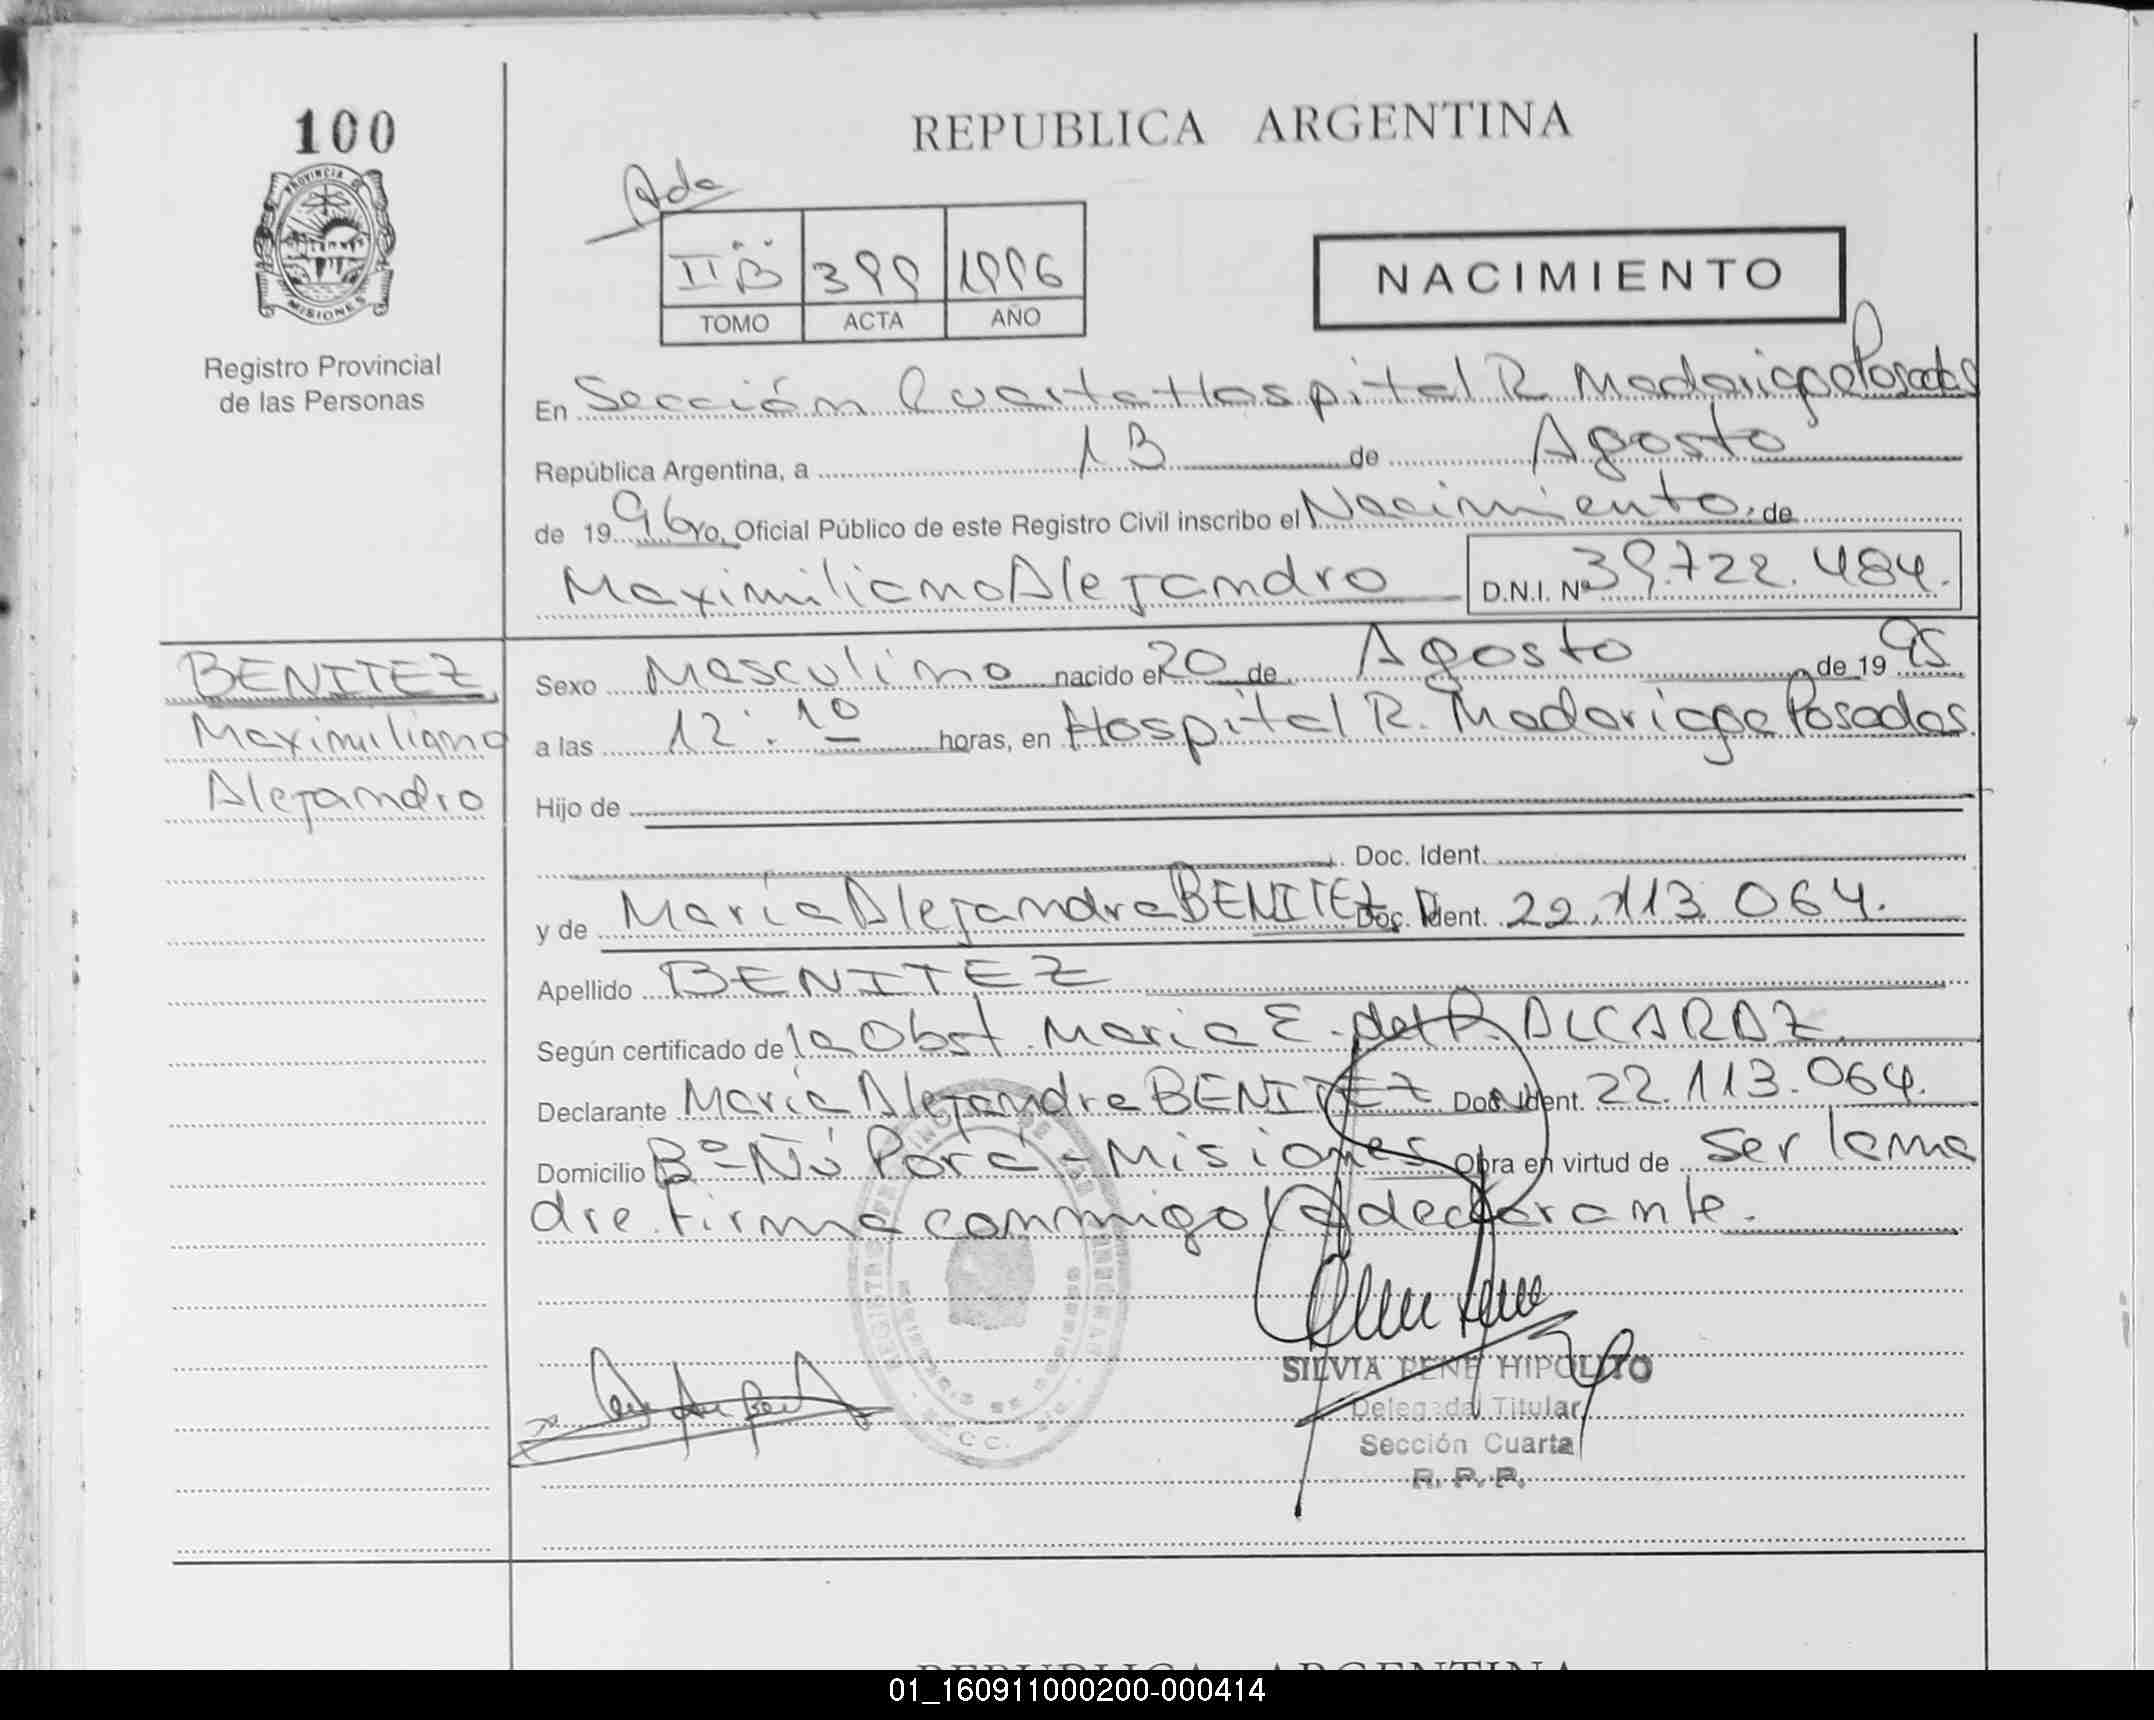 100
REPUBLICA ARGENTINA
PROVINCIA DE
MISIONES
Registro Provincial
de las Personas
Ada
II "B" 399 1996
TOMO ACTA AÑO
NACIMIENTO
En Sección Cuarta Hospital R. Madariaga Posadas
República Argentina, a 13 de Agosto
de 1996 Oficial Público de este Registro Civil inscribo el Nacimiento de
Maximiliano Alejandro D.N.I. Nº 39.722.484.
BENITEZ
Maximiliano
Alejandro
Sexo Masculino nacido el 20 de Agosto de 1995
a las 12:10 horas, en Hospital R. Madariaga Posadas
Hijo de
Doc. Ident.
y de María Alejandra BENITEZ Doc. Ident. 22.113.064.
Apellido BENITEZ
Según certificado de la Obst. Maria E. del P. ALCARAZ.
Declarante María Alejandra BENITEZ Doc. Ident. 22.113.064.
Domicilio Bº Ñú Porá - Misiones Obra en virtud de ser la ma
dre. Firma conmigo la declarante.
SILVIA RENE HIPOLITO
Delegada Titular
Sección Cuarta
R. P. P.
REPUBLICA ARGENTINA
01_160911000200-000414